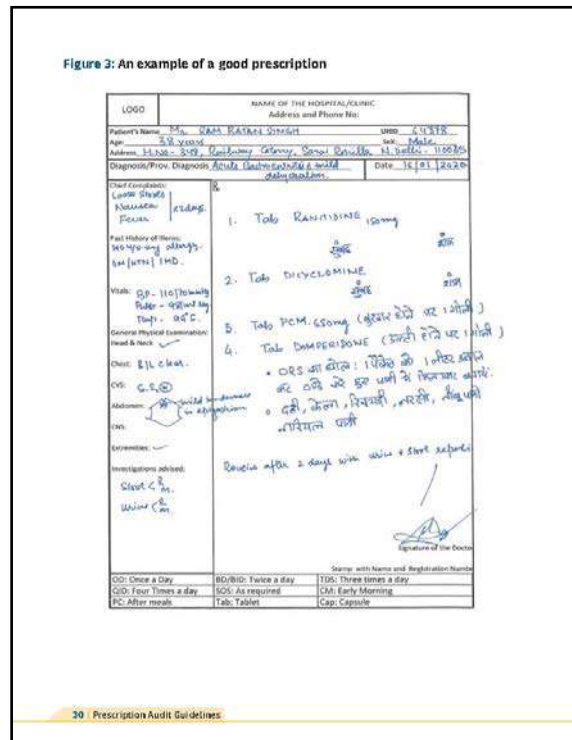 Figure 3: An example of a good prescription
LOGO
NAME OF THE HOSPITAL/CLINIC
Address and Phone No:
Patient's Name Mr. RAM RATAN SINGH UHID 64378
Age: 38 years Sex: Male
Address H.No- 348, Railway Colony, Sarai Rohilla, N. Delhi- 110085
Diagnosis/Prov. Diagnosis Acute Gastroenteritis & mild dehydration. Date 16/01/2020
Chief Complaints:
Loose Stools
Nausea
Fever
x2days
Past History of Illness:
No h/o any allergy.
DM/HTN/IHD.
Vitals: BP- 110/70mmHg
Temp-
General Physical Examination:
Head & Neck
Chest: B/L clear.
CVS:
Abdomen: mild tenderness in epigastrium
CNS:
Extremities:
Investigations advised:
Stool R/M.
Urine R/M.
R
1. Tab RANITIDINE 150mg
सुबह शाम
2. Tab DICYCLOMINE
सुबह शाम
3. Tab PCM 650mg (बुखार होने पर 1 गोली)
4. Tab DOMPERIDONE (उल्टी होने पर 1 गोली)
• ORS का घोल: 1 पैकेट को 1 लीटर
• दही, केला, खिचड़ी, लस्सी, नींबू पानी
नारियल पानी
Review after 2 days with urine & stool reports
Signature of the Doctor
Stamp with Name and Registration Number
OD: Once a Day BD/BID: Twice a day TDS: Three times a day
QID: Four Times a day SOS: As required CM: Early Morning
PC: After meals Tab: Tablet Cap: Capsule
30 | Prescription Audit Guidelines